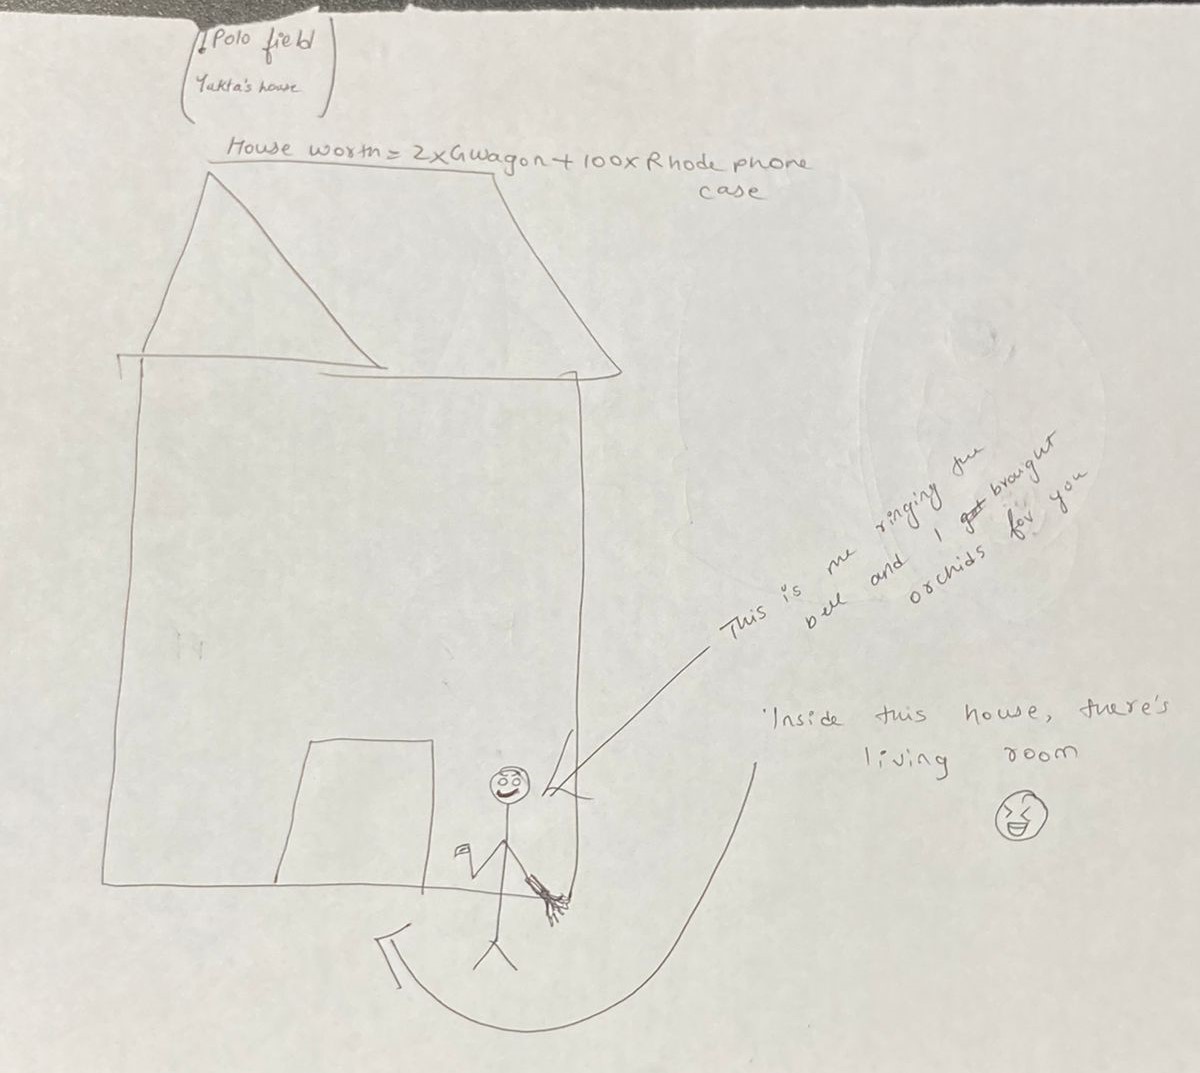 1 Polo field
Yukta's house
House worth = 2xGwagon + 100x Rhode phone
case
This is me ringing the
bell and I got brought
orchids for you
Inside this house, there's
living room